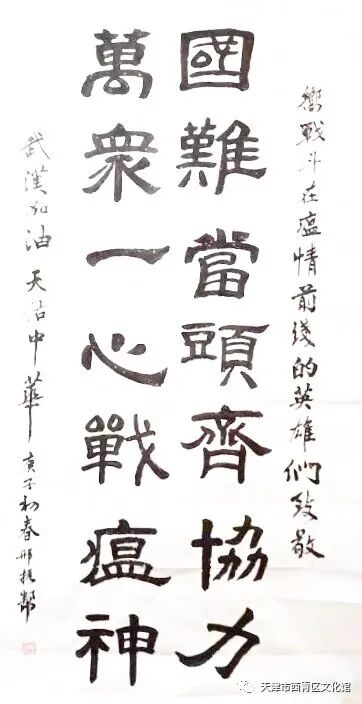 嚮戰斗在瘟情前线的英雄們致敬
國難當頭齊協力
萬衆一心戰瘟神
武漢加油 天佑中華 庚子初春邢
天津市西青区文化馆